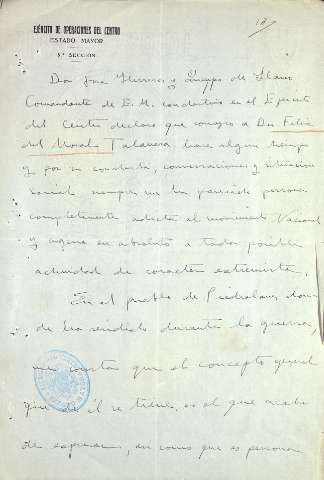 18
EJÉRCITO DE OPERACIONES DEL CENTRO
ESTADO MAYOR
5ª SECCIÓN
Don José y Queipo de Llano
Comandante de E. M. con destino en el Ejército
del Centro declaro que conozco a Don Felix
del Moral Talavera hace algún tiempo
y por su conducta, conversaciones y situación
social siempre me ha parecido persona
completamente adicta al movimiento Nacional
y en absoluto a toda posible
actividad de caracter extremista.
En el pueblo de Piedralaves, don-
de ha residido durante la guerra,
me consta que el concepto general
que de él se tiene, es el que acabo
de expresar, así como que es persona